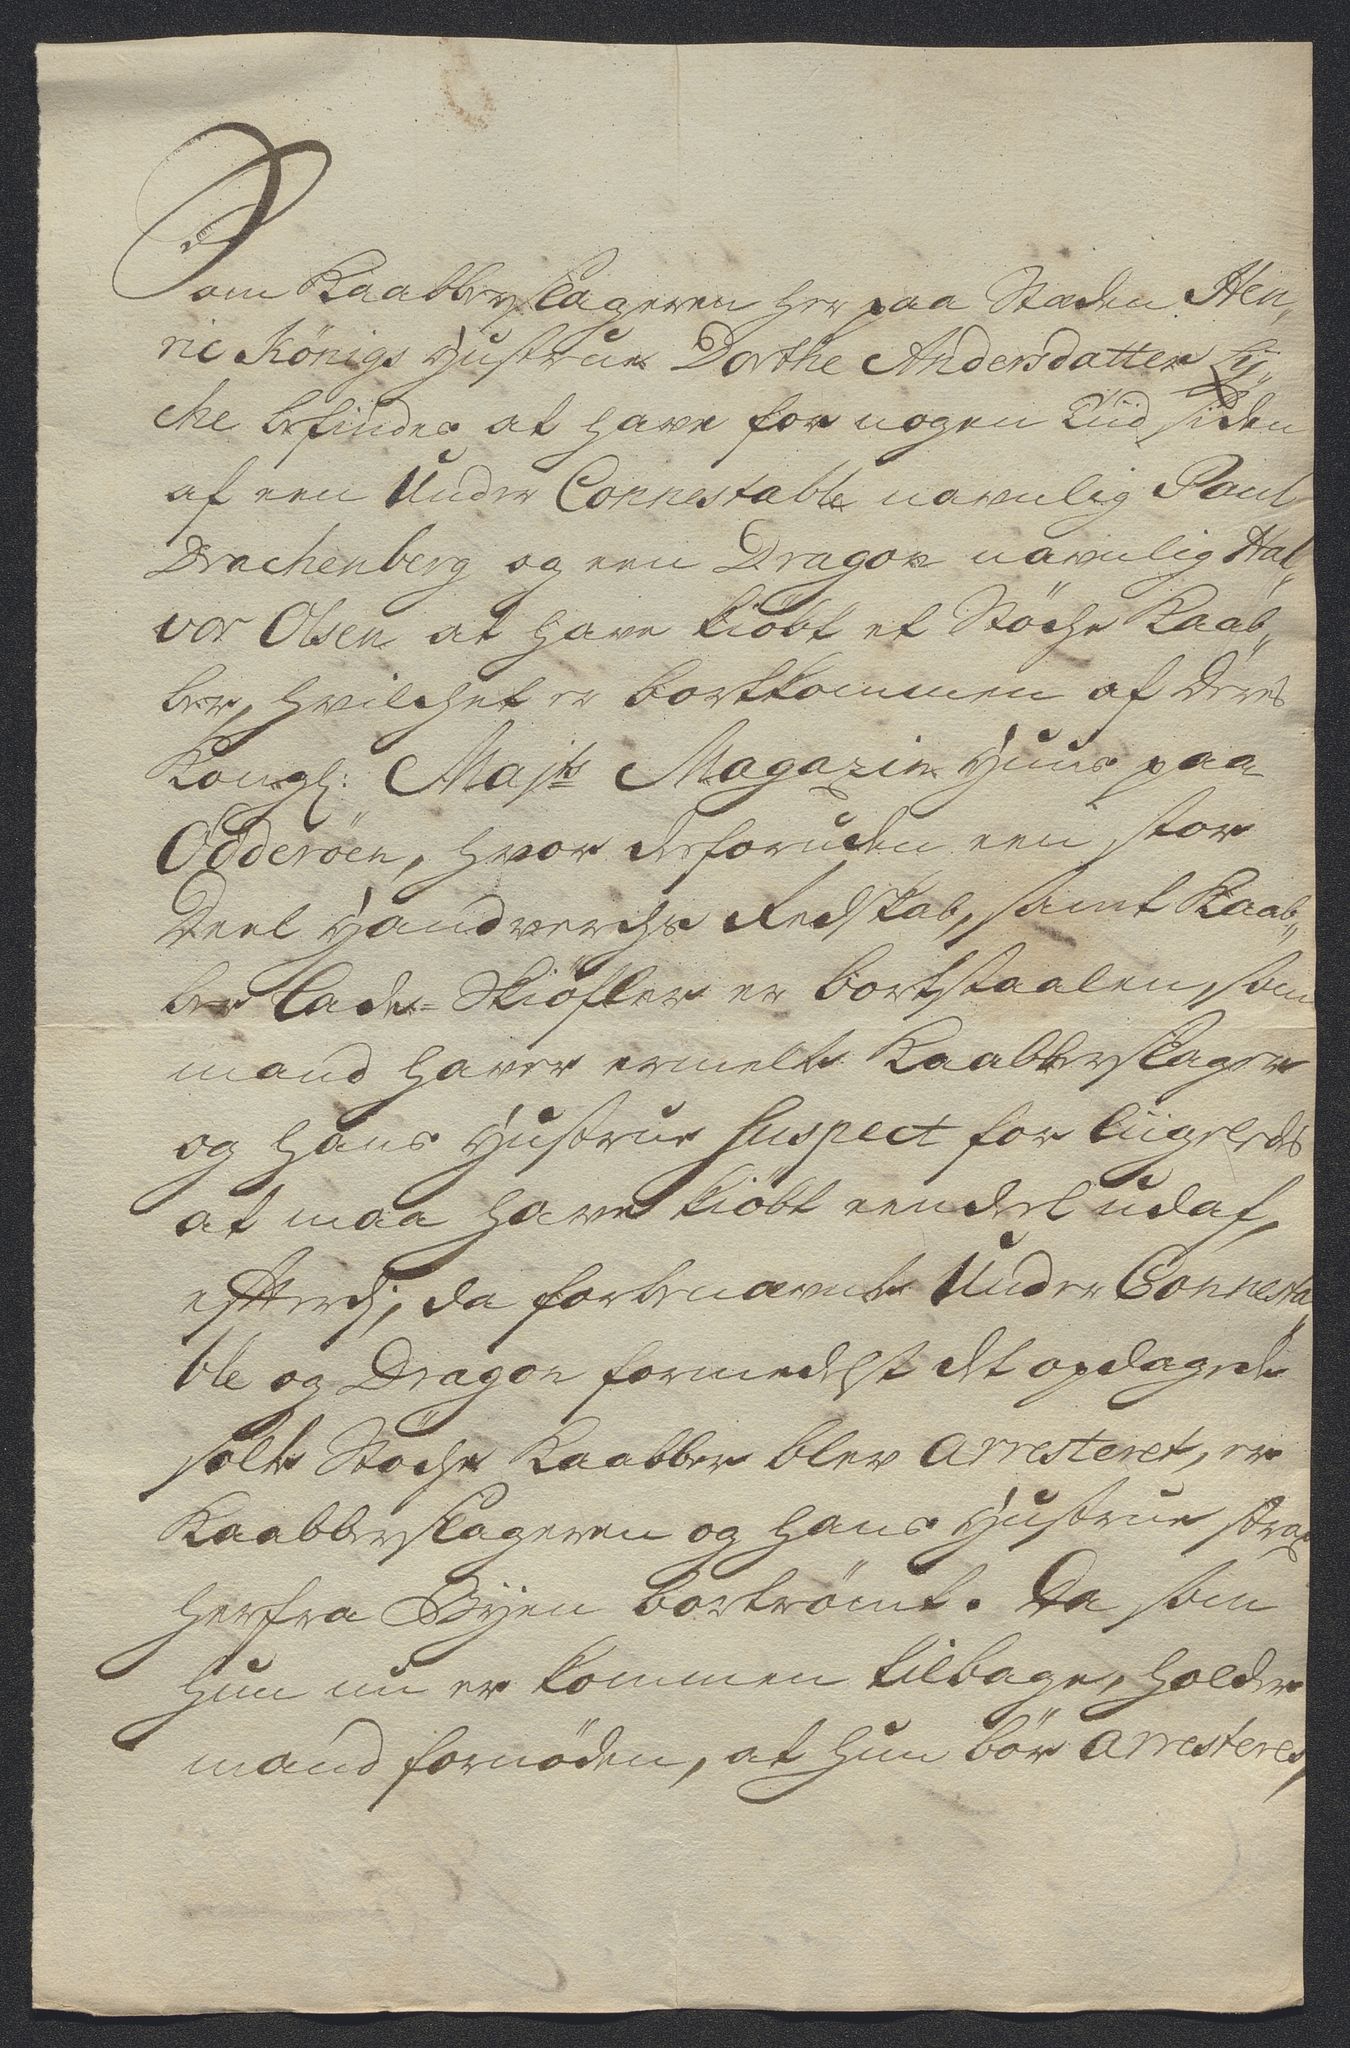 Som Kaabberslageren her paa Stæden Hen„
ric Königs Hustrue Dorthe Andersdatter Ly„
che befindes at have for nogen Tiid siden
af een Under Connestable navnlig Paul
Drachenberg og een Dragon navnlig Hal„
vor Olsen at have kiöbt et Stöche Kaab„
ber, hvilchet er bortkommen af Deres
Kongl: Majts Magazin Huus paa
Odderöen, hvor desforuden een stor
Deel Handverchs Redskab, samt Kaab„
ber Lade-Skiöfler er bortstaalen, som
mand haver ermelte Kaabberslager
og hans Hustrue Suspect for liigeledes
at maa have kiöbt eendeel udaf,
efterdj, da forbenævnte Under Connesta„
ble og Dragon formedelst det opdagede
solte Stöche Kaabber blev arresteret, er
Kaabberslageren og hans Hustrue strax
herfra Byen bortrömt. Da som
hun nu er kommen tilbage, holder
mand fornöden, at hun bör arresteres,